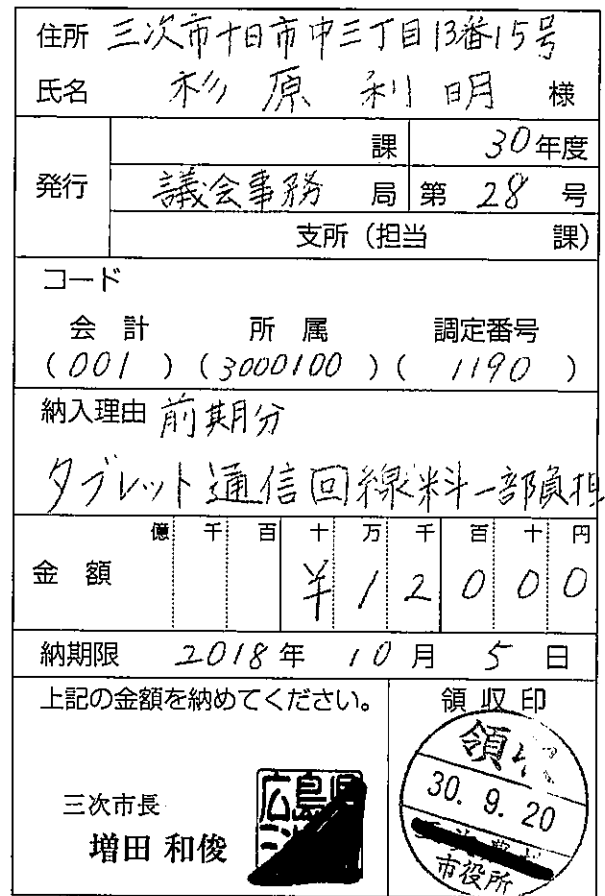 住所 三次市十日市中三丁目13番15号
氏名 杉原 利明 様
発行
課 30年度
議会事務 局 第 28 号
支所（担当 課）
コード
会計 所属 調定番号
(001) (3000100) (1190)
納入理由 前期分
タブレット通信回線料一部負担
億 千 百 十 万 千 百 十 円
金額 ¥12000
納期限 2018年 10月 5日
上記の金額を納めてください。
領収印
三次市長
増田 和俊
広島
領
30. 9. 20
市役所